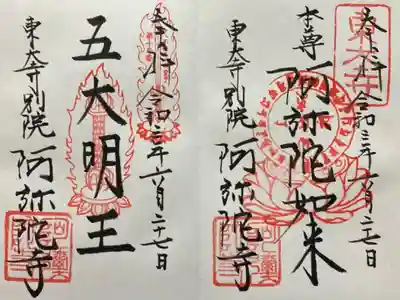 東大寺
奉拝 令和三年六月二十七日
本尊 阿弥陀如来
東大寺別院 阿弥陀寺
奉拝 令和三年六月二十七日
五大明王
東大寺別院 阿弥陀寺